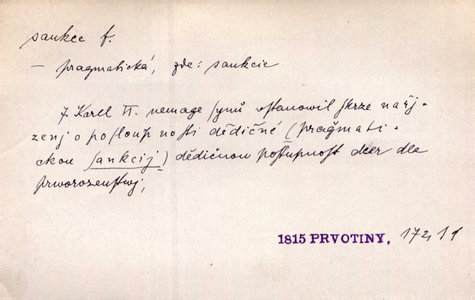 sankce f.
— pragmatická, zde: sankcie
Karel VI. nemage synů ustanowil skrze nařj-
zenj o posloupnosti dědičné (pragmati-
ckou sankcij) dědičnou postupnost dcer dle
prworozenstwj,
1815 PRVOTINY, 172, 11